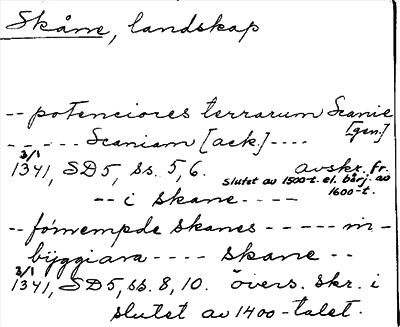 Skåne, landskap
-- potenciores terrarum Scanie [gen.]
- - - - - Scaniam [ack.] - - - -
3/1 1341, SD5, ss. 5, 6. avskr. fr. slutet av 1500-t. el. börj. av 1600-t.
-- i skane - - - -
-- fornempde skanes - - - - - in-
byggiara - - - - skane - -
3/1 1341, SD5, ss. 8, 10. övers. skr. i
slutet av 1400-talet.